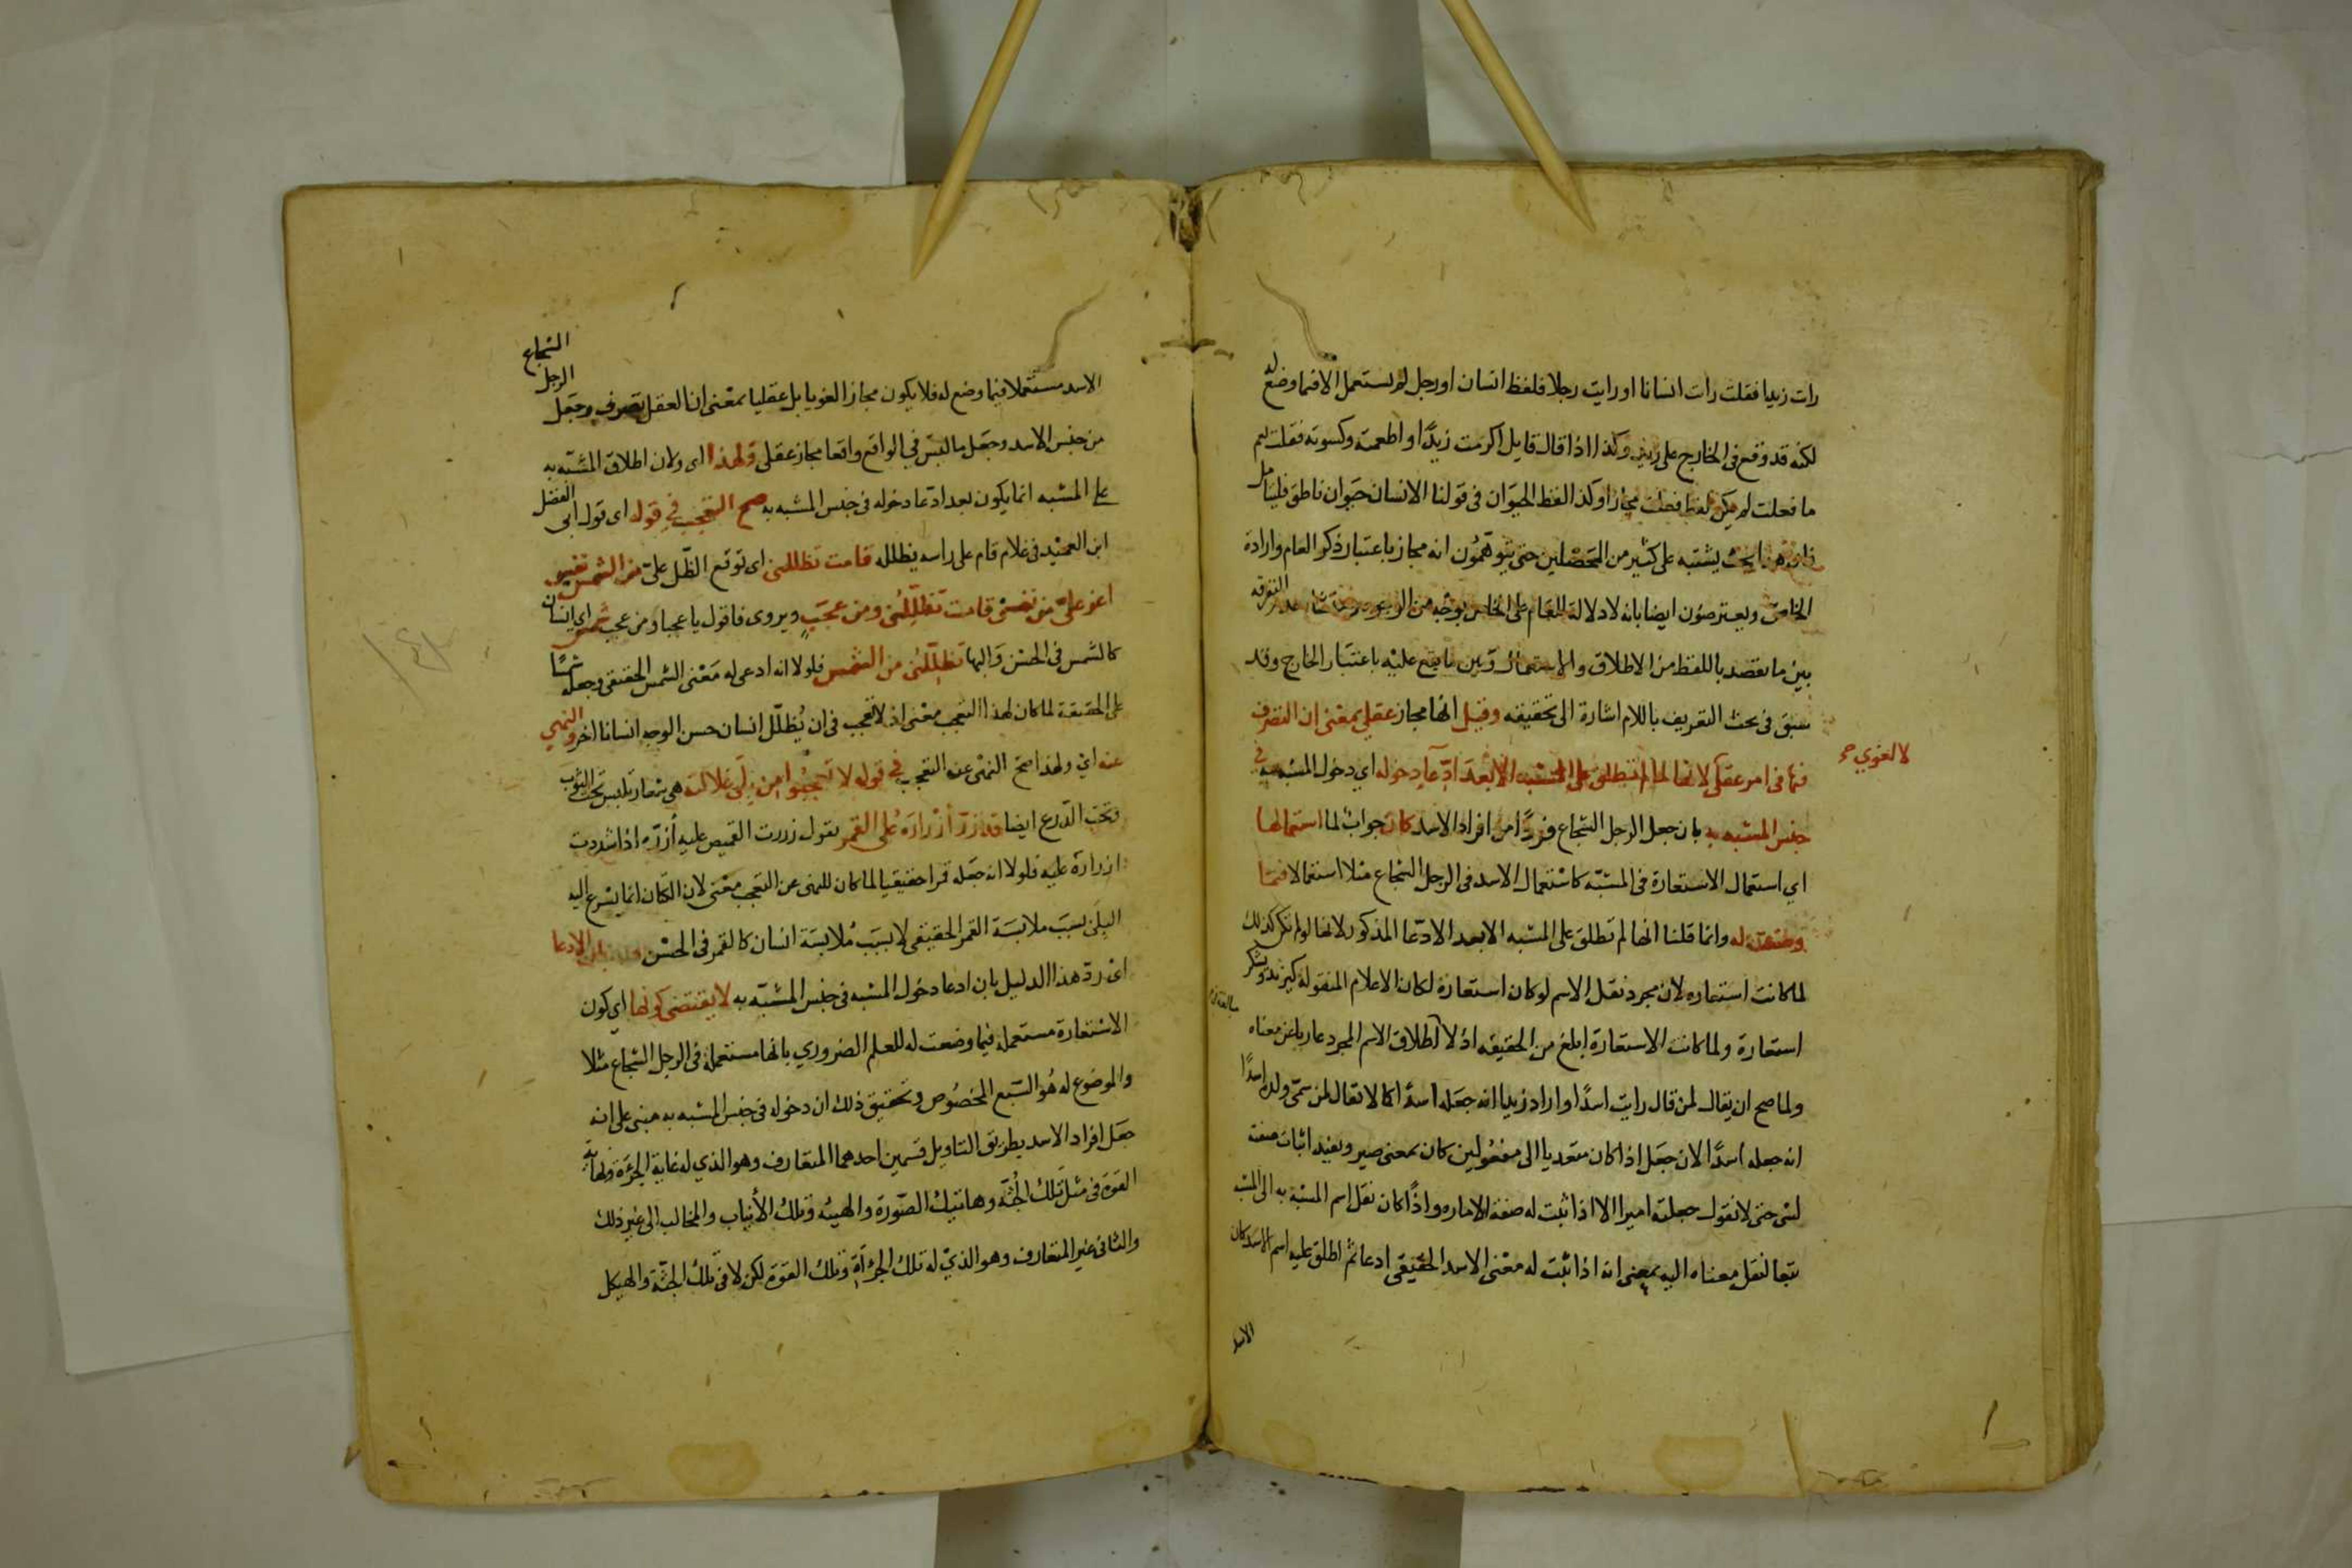 رات زيدا فقلت رات انسانا او رايت رجلا فلفظ انسان او رجل لم يستعمل الا فيما وضع له
لكنه قد وقع في الخارج على زيد وكذا اذا قال قايل اكرمت زيدًا او اطعمته وكسوته فقلت نعم
ما فعلت لم يكن لفظ فعلت مجازا وكذا لفظ الحيوان في قولنا الانسان حيوان ناطق فليتامل
فان هذا بحث يشتبه على كثير من المحصلين حتى يتوهمون انه مجاز باعتبار ذكر العام وارادة
الخاص ويعترضون ايضا بانه لا دلالة للعام على الخاص بوجه من الوجوه التفرقه
بين ما يقصد باللفظ من الاطلاق والاستعمال وبين ما يقع عليه باعتبار الخارج وقد
سبق في بحث التعريف باللام اشارة الى تحقيقه وقيل انها مجاز عقلي بمعنى ان التصرف
في امر عقلي لانها لما لم تطلق على المشبه الا بعد ادعاء دخوله اي دخول المشبه في
لا لغوي صح
جنس المشبه به بان جعل الرجل الشجاع فردًا من افراد الاسد كان جواب لما استعمالها
اي استعمال الاستعارة في المشبه كاستعمال الاسد في الرجل الشجاع مثلا استعمالا فيما
وضعت له وانما قلنا انها لم تطلق على المشبه الا بعد الادعا المذكور لانها لو لم تكن كذلك
لما كانت استعاره لان مجرد نقل الاسم لو كان استعارة لكان الاعلام المنقولة كيزيد ويشكر
استعارة ولما كانت الاستعارة ابلغ من الحقيقه اذ لا اطلاق الاسم المجرد عاريا عن معناه
ولما صح ان يقال لمن قال رايت اسدًا واراد زيدا انه جعله اسدًا كما لا يقال لمن سمى ولده اسدًا
انه جعله اسدًا لان جعل اذا كان متعديا الى مفعولين كان بمعنى صير ويفيد اثبات صفة
لشي حتى لا تقول جعلته اميرا الا اذا اثبت له صفة الاماره واذًا كان نقل اسم المشبه به الى المشبه
تبعا لنقل معناه اليه بمعنى انه اذا اثبت له معنى الاسد الحقيقي ادعا ثم اطلق عليه اسم الاسد كان
الاسد
الشجاع
الرجل
الاسد مستعملا فيما وضع له فلا يكون مجازا لغويا بل عقليا بمعنى ان العقل تصرف وجعل
من جنس الاسد وجعل ما ليس في الواقع واقعا مجاز عقلي ولهذا اي ولان اطلاق المشبه به
على المشبه انما يكون بعد ادعا دخوله في جنس المشبه به صح التعجب في قوله اي قول ابي الفضل
ابن العميد في غلام قام على راسه يظلله قامت تظللني اي توقع الظل علي من الشمس نفس
اعز علي من نفسي قامت تظللني ومن عجب ويروى فاقول يا عجبا ومن عجب شمس اي انسان
كالشمس في الحسن والبها تظللني من الشمس فلولا انه ادعى له معنى الشمس الحقيقي وجعله شمسًا
على الحقيقة لما كان لهذا التعجب معنى اذ لا تعجب في ان يظلل انسان حسن الوجه انسانا اخر والنهي
عنه اي ولهذا صح النهي عن التعجب في قوله لا تعجبوا من بلى غلالته هي شعار تلبس تحت الثوب
وتحت الدرع ايضا قد زر ازراره على القمر يقول زررت القميص عليه ازره اذا شددت
ازراره عليه فلولا انه جعله قمرا حقيقيا لما كان للنهي عن التعجب معنى لان الكتان انما يسرع اليه
البلى بسبب ملابسة القمر الحقيقي لا بسبب ملابسة انسان كالقمر في الحسن بان الادعا
اي رد هذا الدليل بان ادعا دخول المشبه في جنس المشبه به لا يقتضي كونها اي كون
الاستعارة مستعملة فيما وضعت له للعلم الضروري بانها مستعملة في الرجل الشجاع مثلا
والموضوع له هو السبع المخصوص وتحقيق ذلك ان دخوله في جنس المشبه به مبني على انه
جعل افراد الاسد بطريق التاويل قسمين احدهما المتعارف وهو الذي له غاية الجرءة ونهاية
القوة في مثل تلك الجثه وهاتيك الصورة والهيئه وتلك الأنياب والمخالب الى غير ذلك
والثاني غير المتعارف وهو الذي له تلك الجرأة وتلك القوة لكن لا في تلك الجثة والهيكل